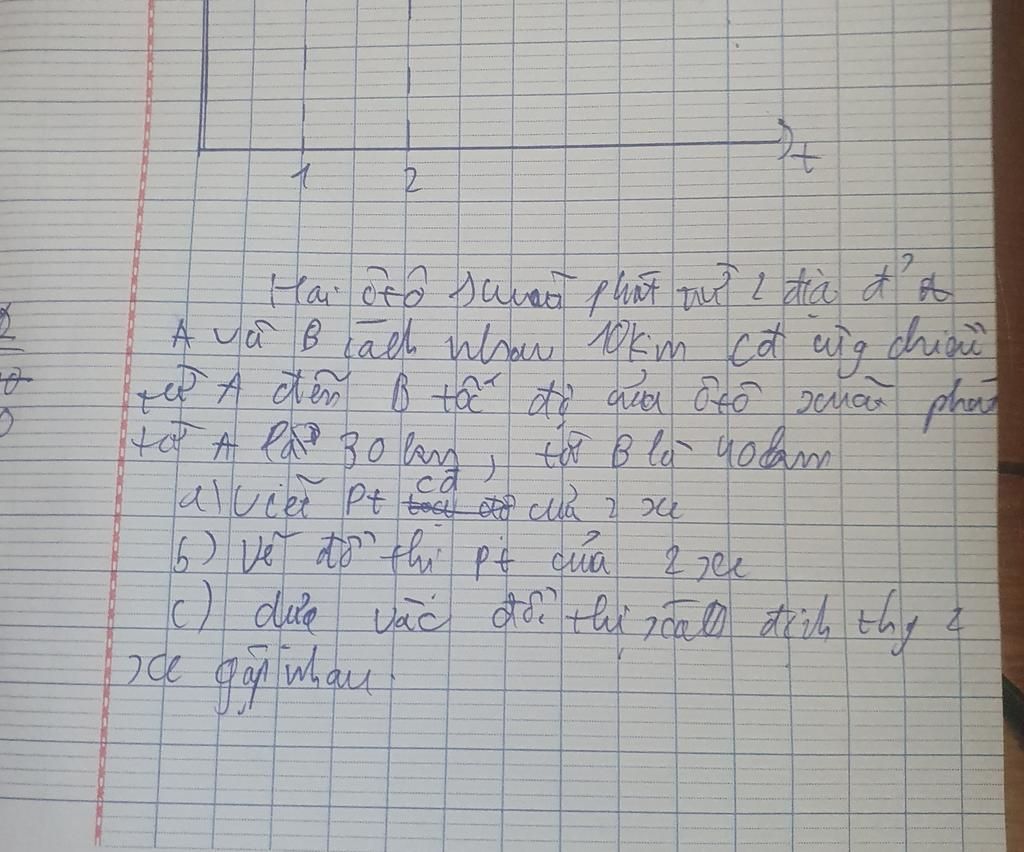 t
1 2
Hai ôtô xuất phát từ 2 địa đ²
A và B cách nhau 10km cđ cùg chiều
từ A đến B tốc độ của ôtô xuất phát
từ A là 30 km, từ B là 40km
a) Viết Pt cđ của 2 xe
b) Vẽ đồ thị pt của 2 xe
c) dựa vào đồ thị xác địch thg 2
xe gặp nhau